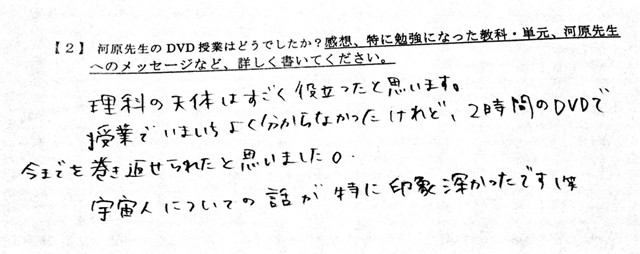 【２】 河原先生のDVD授業はどうでしたか？感想、特に勉強になった教科・単元、河原先生
へのメッセージなど、詳しく書いてください。
理科の天体はすごく役立ったと思います。
授業でいまいちよく分からなかったけれど、2時間のDVDで
今までを巻き返せられたと思いました。
宇宙人についての話が特に印象深かったです(笑